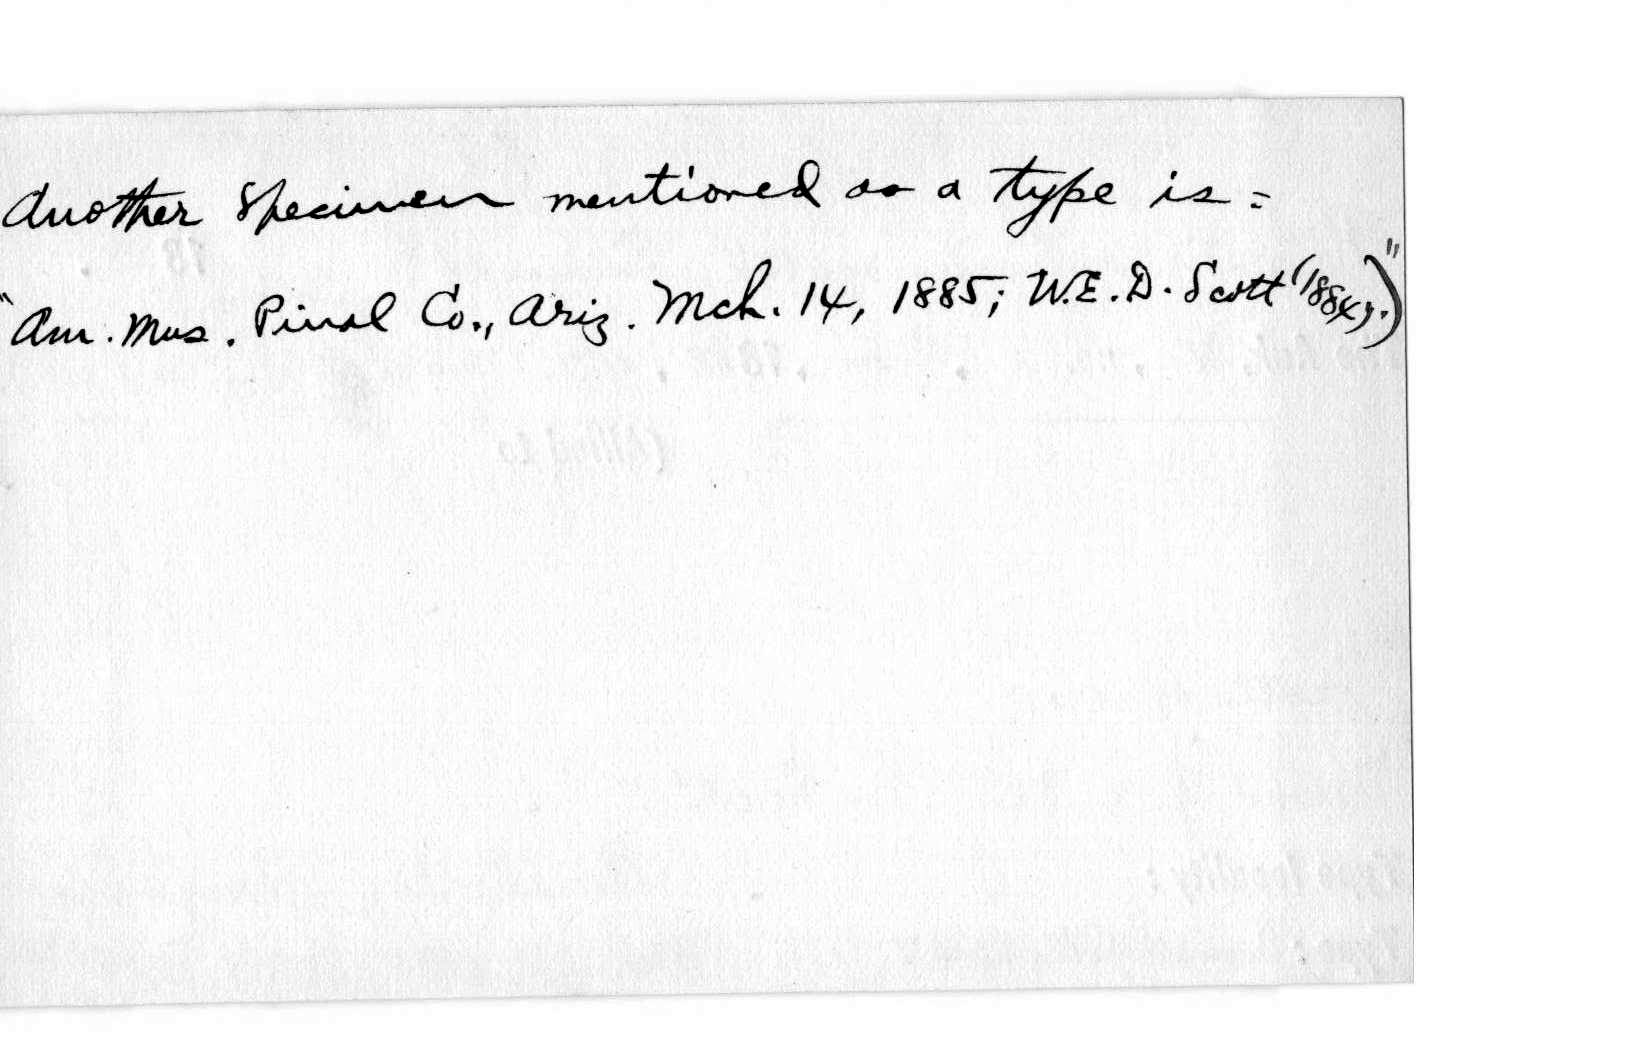 Another specimen mentioned as a type is =
"Am. Mus. Pinal Co., Ariz. Mch. 14, 1885; W.E.D. Scott (1884)."